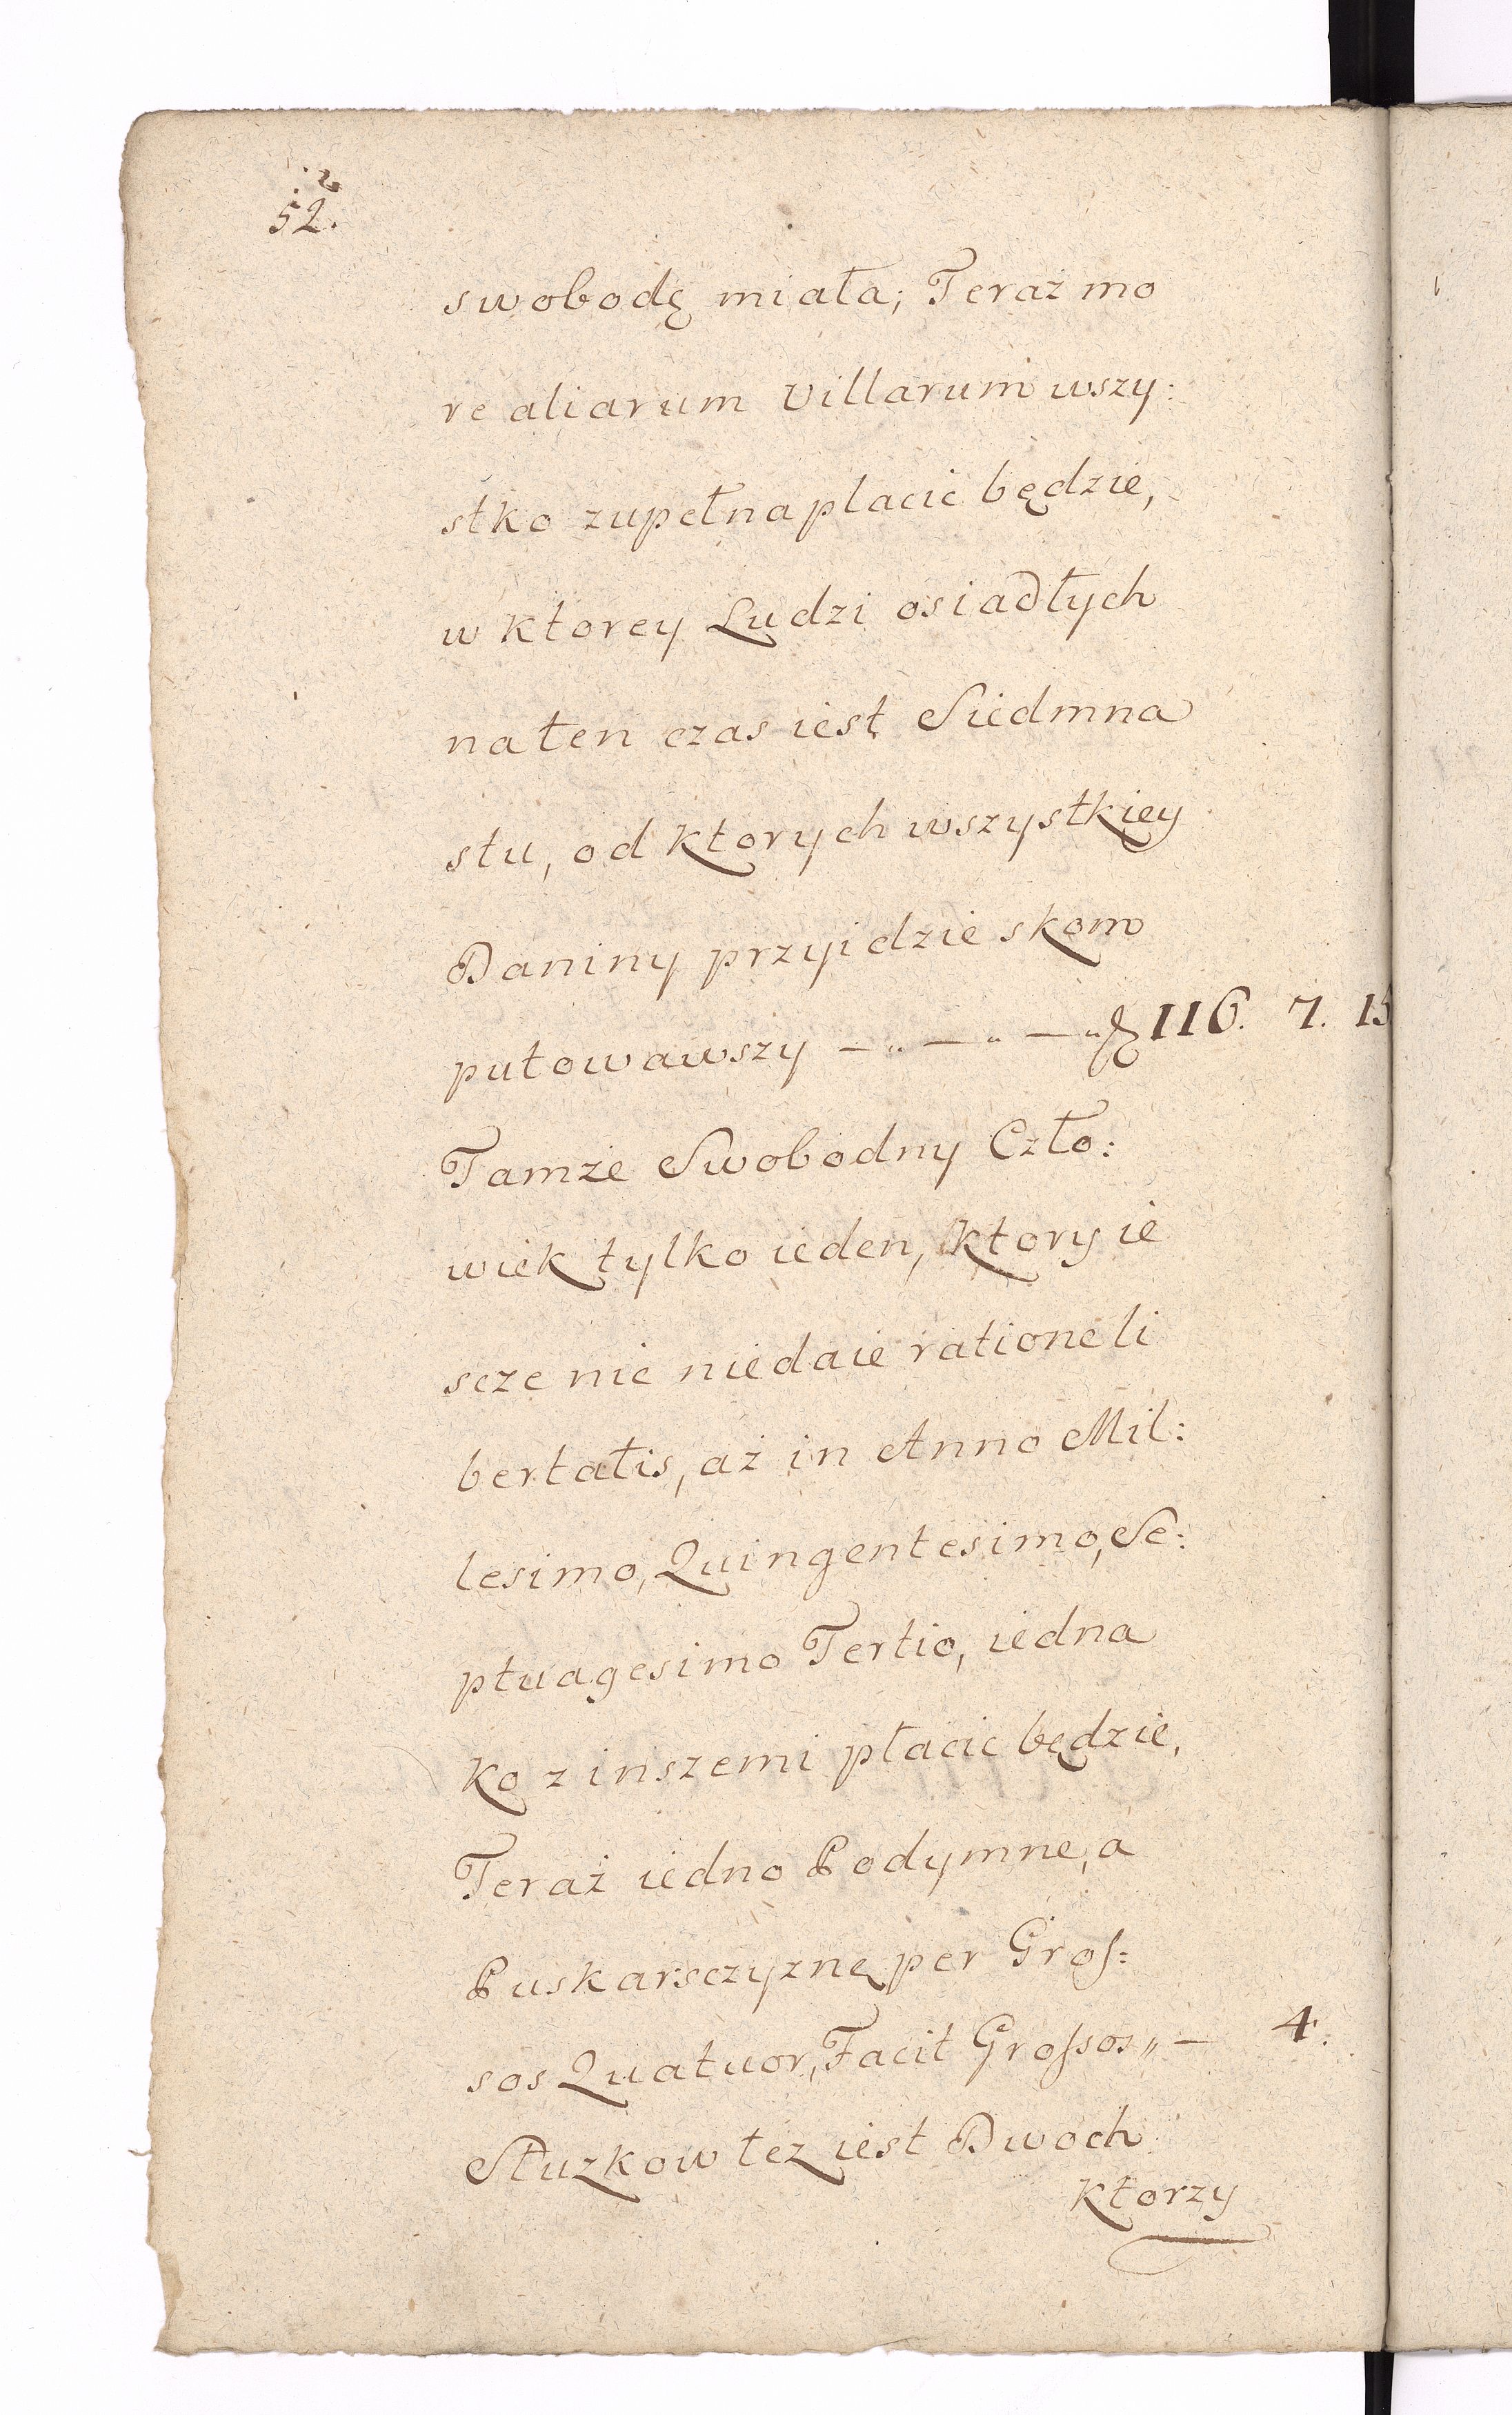 52.
swobodę miała; Teraż mo
re aliarum Villarum wszy:
stko zupełna placić będzie,
w ktorey Ludzi osiadłych
na ten czas iest Siedmna
stu, od ktorych wszystkiey
Daniny przyidzie skom
putowawszy — „ — „ — „ 116. 7. 15
Tamże Swobodny Czło:
wiek tylko ieden, ktory ie
scze nic niedaie ratione li
bertatis, aż in Anno Mil:
lesimo, Quingentesimo, Se:
ptuagesimo Tertio, iedna
ko z inszemi płacić będzie,
Teraż iedno Podymne, a
Puskarsczyznę per Gros:
sos Quatuor, Facit Grossos „ — 4.
Służkow też iest Dwoch
ktorzy